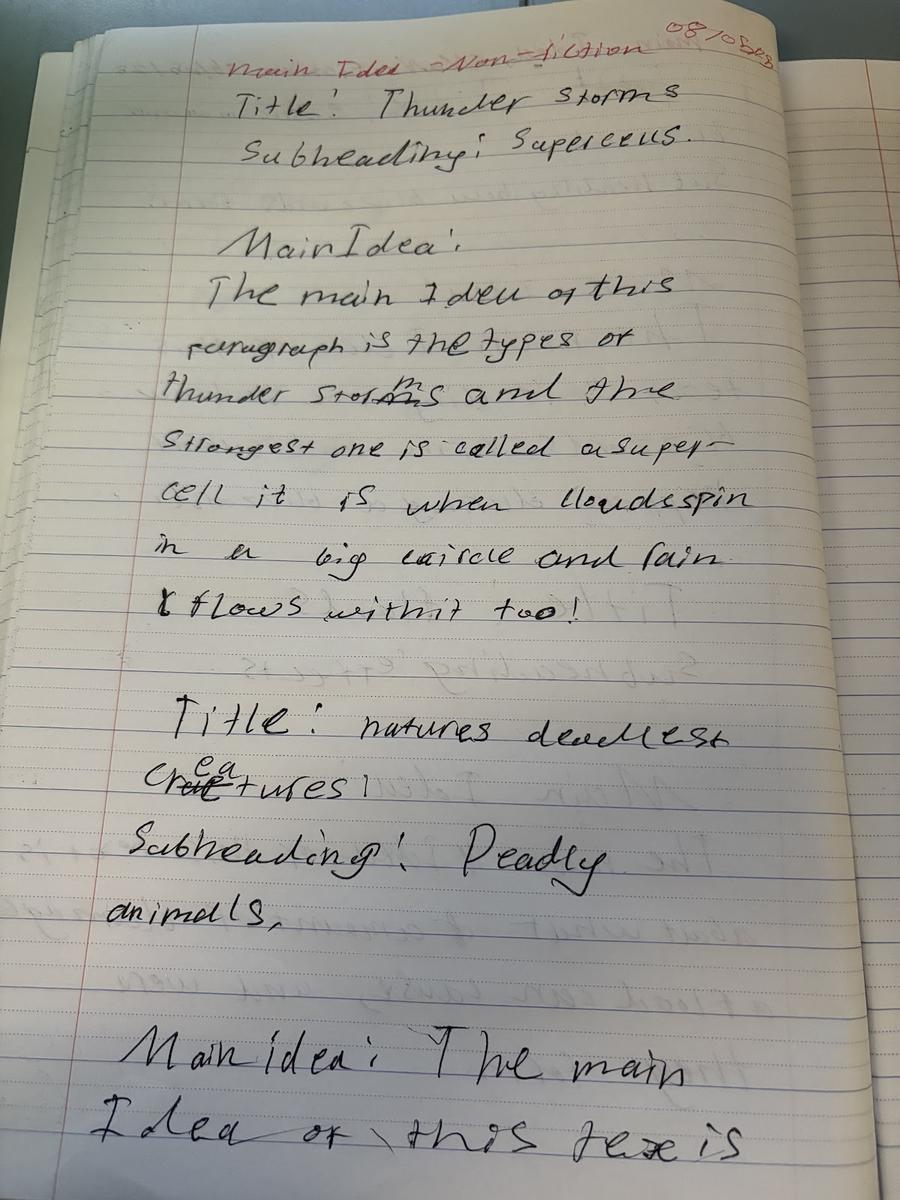 main Idea - Non-fiction
Title: Thunder storms
Subheading: Supercells.
Main Idea:
The main Idea of this
paragraph is the types of
thunder storms and the
strongest one is called a super-
cell it is when cloudsspin
in a big caircle and rain
flows withit too!
Title: natures deadlest
creatures!
Subheading: Deadly
animals,
Main idea: The main
Idea of this tex is